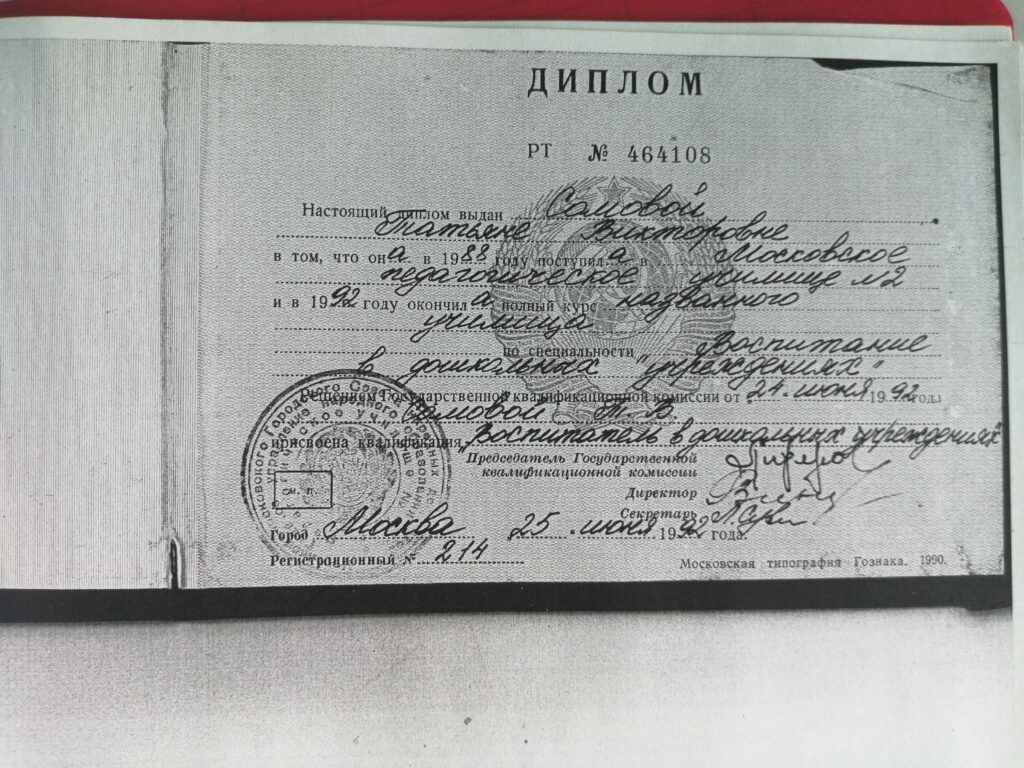 ДИПЛОМ
РТ № 464108
Настоящий диплом выдан Самовой
Татьяне Викторовне
в том, что она в 1988 году поступила в Московское
педагогическое училище №2
и в 1992 году окончила полный курс названного
училища
по специальности „Воспитание
в дошкольных учреждениях"
Решением Государственной квалификационной комиссии от 24 июня 1992 год.
Самовой Т. В.
присвоена квалификация „Воспитатель в дошкольных учреждениях"
Председатель Государственной
квалификационной комиссии
Директор
Секретарь
м. п.
Город Москва 25 июня 1992 года.
Регистрационный № 214
Московская типография Гознака. 1990.